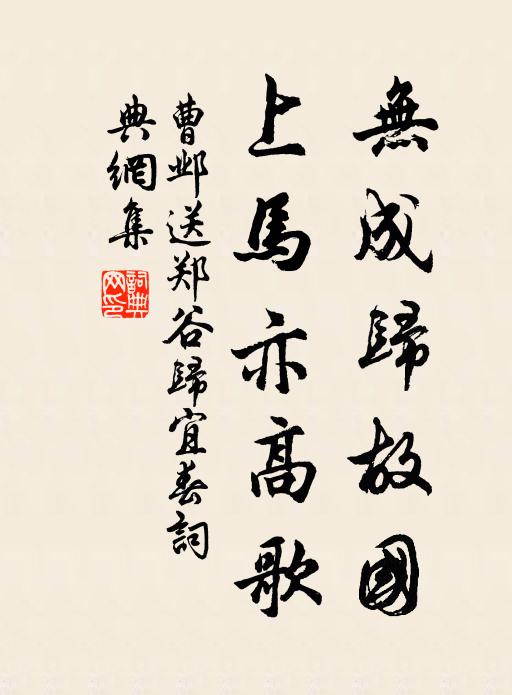 無成歸故國
上馬亦高歌
曹邺送郑谷歸宜春詞
典網集
詞典
网印